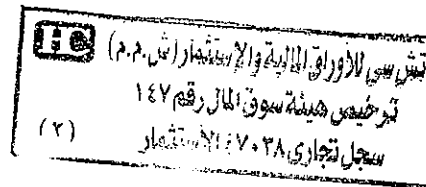 HC
تش سي للأوراق المالية والإستثمار (ش.م.م)
ترخيص هيئة سوق المال رقم ١٤٧
سجل تجارى ٤٧٠٣٨ الاستثمار
(٣)